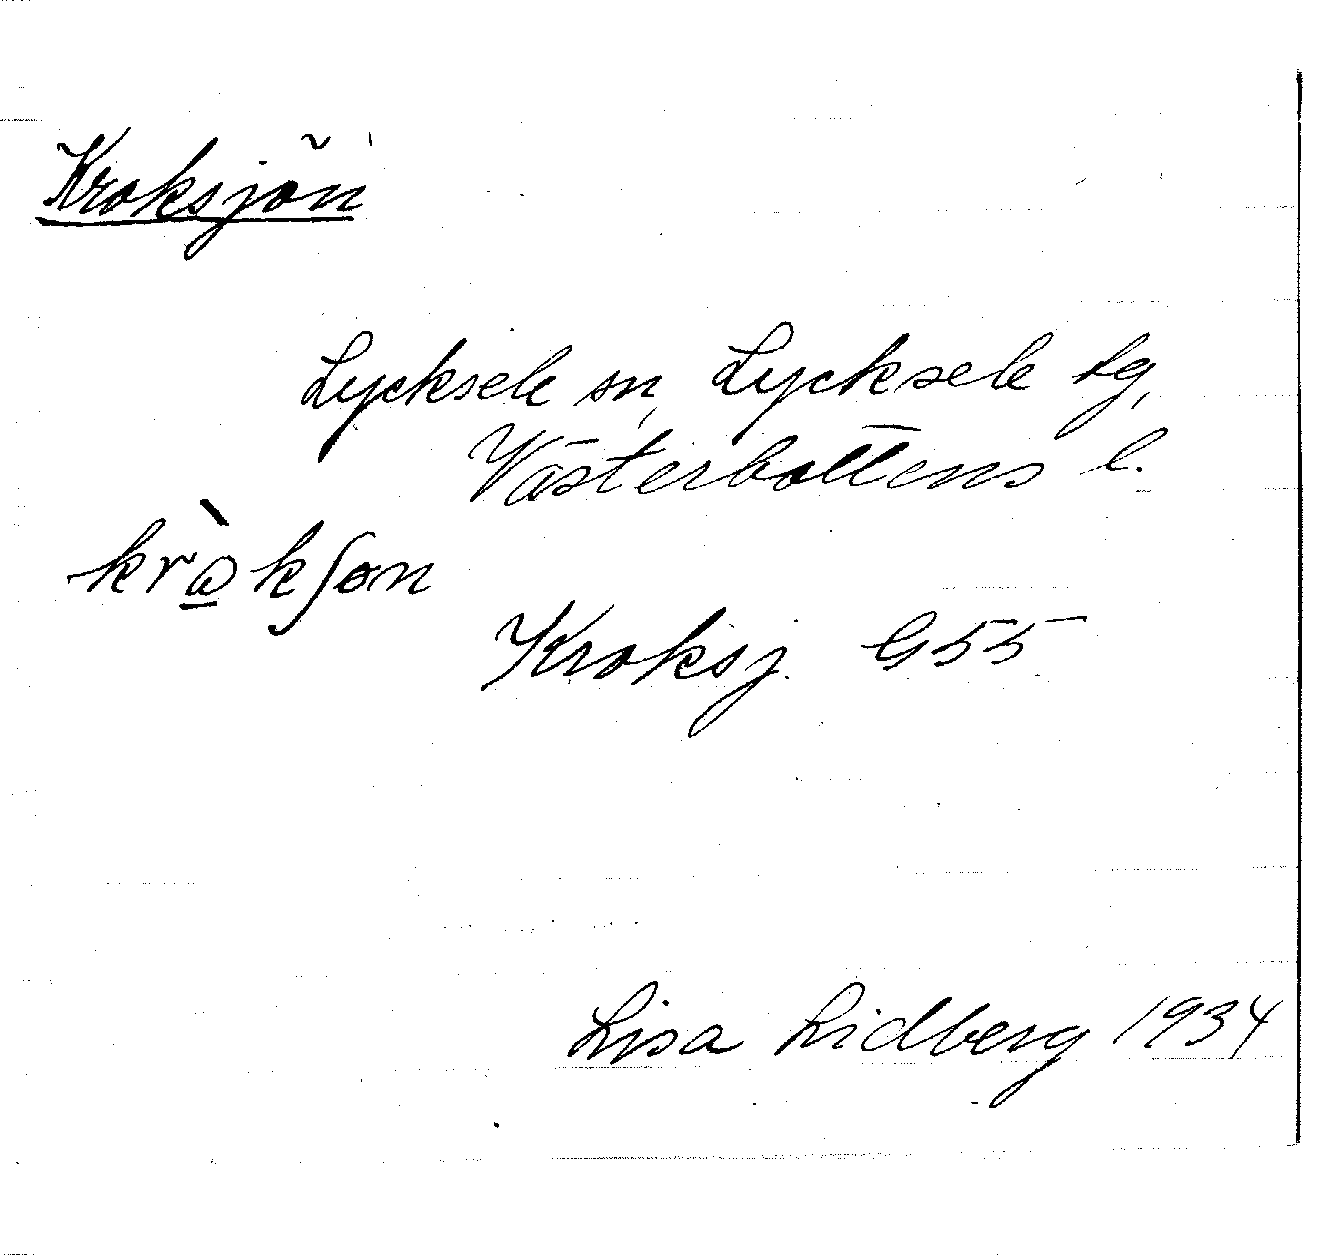 Kroksjön
Lycksele sn, Lycksele tg,
Västerbottens l.
Kroksj. G55
Lisa Lidberg 1934